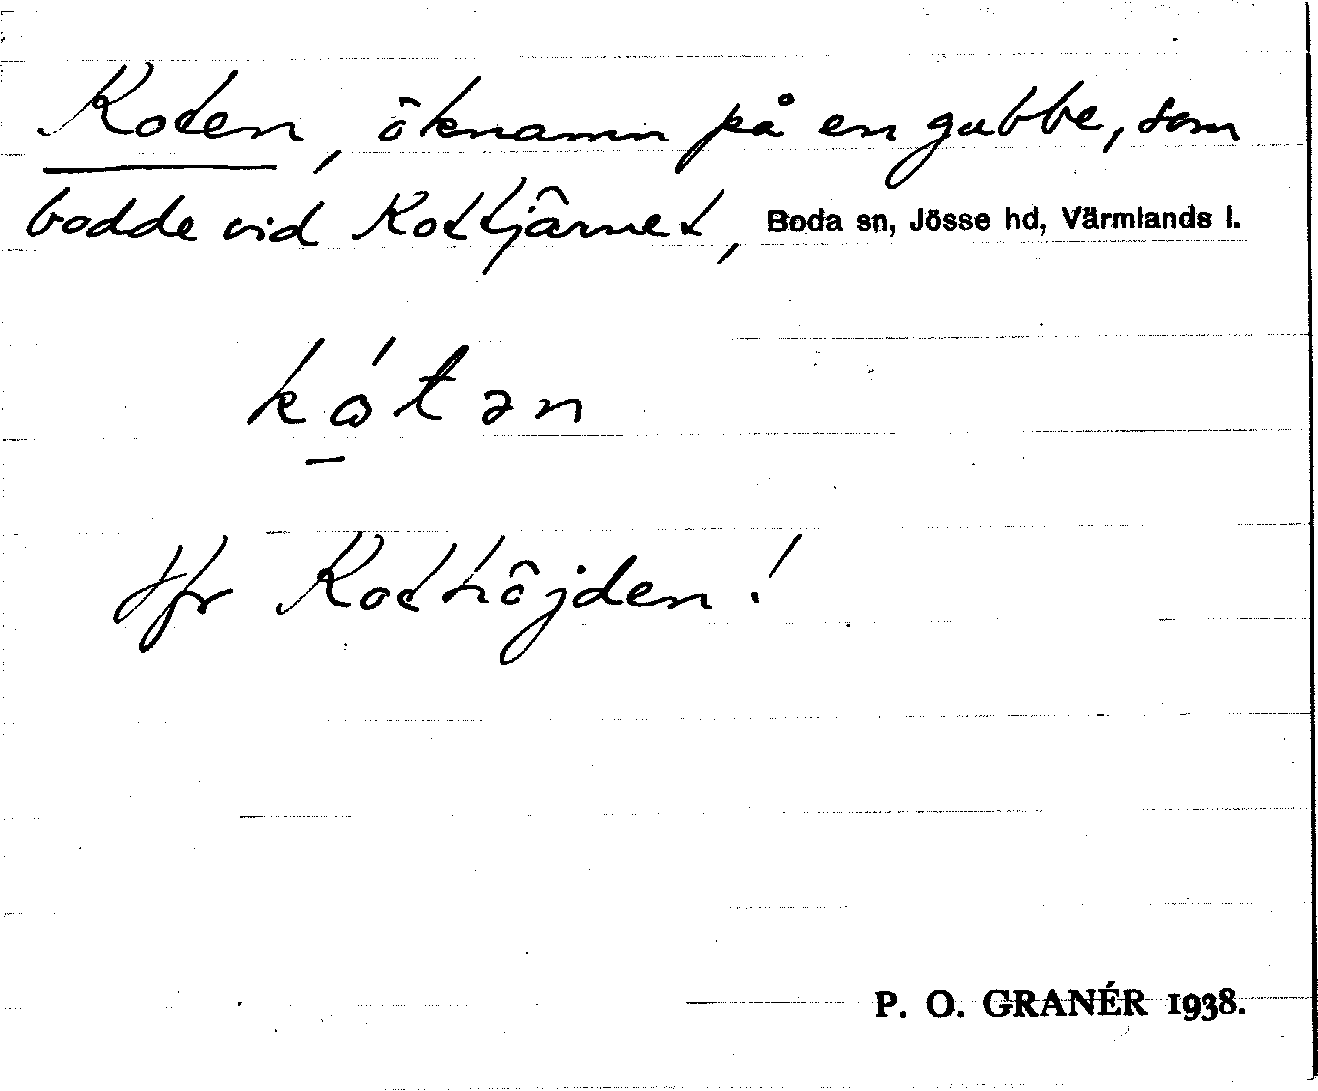 Koten, öknamn på en gubbe, som
bodde vid Kottjärnet, Boda sn, Jösse hd, Värmlands l.
kótən
Jfr Kothöjden!
P. O. GRANÉR 1938.